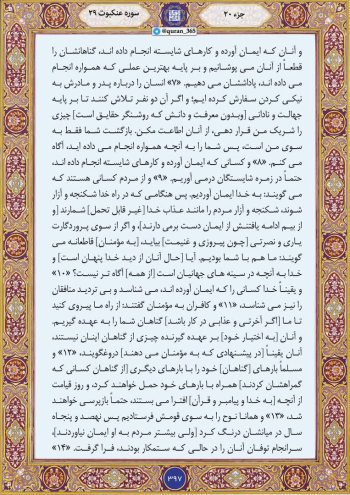 جزء ۲۰
@quran_365
سوره عنکبوت ۲۹
و آنان که ایمان آورده و کارهای شایسته انجام داده اند، گناهانشان را
قطعاً از آنان می پوشانیم و بر پایه بهترین عملی که همواره انجام
می داده اند، پاداششان می دهیم. «۷» انسان را درباره پدر و مادرش به
نیکی کردن سفارش کرده ایم؛ و اگر آن دو نفر تلاش کنند تا بر پایه
جهالت و نادانی [وبدون معرفت و دانش که روشنگر حقایق است] چیزی
را شریک من قرار دهی، از آنان اطاعت مکن. بازگشت شما فقط به
سوی من است، پس شما را به آنچه همواره انجام می داده اید، آگاه
می کنم. «۸» و کسانی که ایمان آورده و کارهای شایسته انجام داده اند،
حتماً در زمره شایستگان درمی آوریم. «۹» و از مردم کسانی هستند که
می گویند: به خدا ایمان آوردیم. پس هنگامی که در راه خدا شکنجه و آزار
شوند، شکنجه و آزار مردم را مانند عذاب خدا [غیر قابل تحمل] شمارند [و
از بیم ادامه یافتنش از ایمان دست برمی دارند]، و اگر از سوی پروردگارت
یاری و نصرتی [چون پیروزی و غنیمت] بیاید، [به مؤمنان] قاطعانه می
گویند: ما هم با شما بودیم. آیا [حال آنان از دید خدا پنهان است] و
خدا به آنچه در سینه های جهانیان است [از همه] آگاه تر نیست؟ «۱۰»
و یقیناً خدا کسانی را که ایمان آورده اند، می شناسد و بی تردید منافقان
را نیز می شناسد، «۱۱» و کافران به مؤمنان گفتند: از راه ما پیروی کنید
تا ما [اگر آخرتی و عذابی در کار باشد] گناهان شما را به عهده گیریم.
و آنان [به اختیار خود] بر عهده گیرنده چیزی از گناهان اینان نیستند،
آنان یقیناً [در پیشنهادی که به مؤمنان می دهند] دروغگویند، «۱۲» و
مسلماً بارهای [گناهان] خود را با بارهای دیگری [از گناهان کسانی که
گمراهشان کردند] همراه با بارهای خود حمل خواهند کرد، و روز قیامت
از آنچه [به خدا و پیامبر و قرآن] افترا می بستند، حتماً بازپرسی خواهند
شد، «۱۳» و همانا نوح را به سوی قومش فرستادیم پس نهصد و پنجاه
سال در میانشان درنگ کرد [ولی بیشتر مردم به او ایمان نیاوردند]،
سرانجام توفان آنان را در حالی که ستمکار بودند، فرا گرفت. «۱۴»
۳۹۷